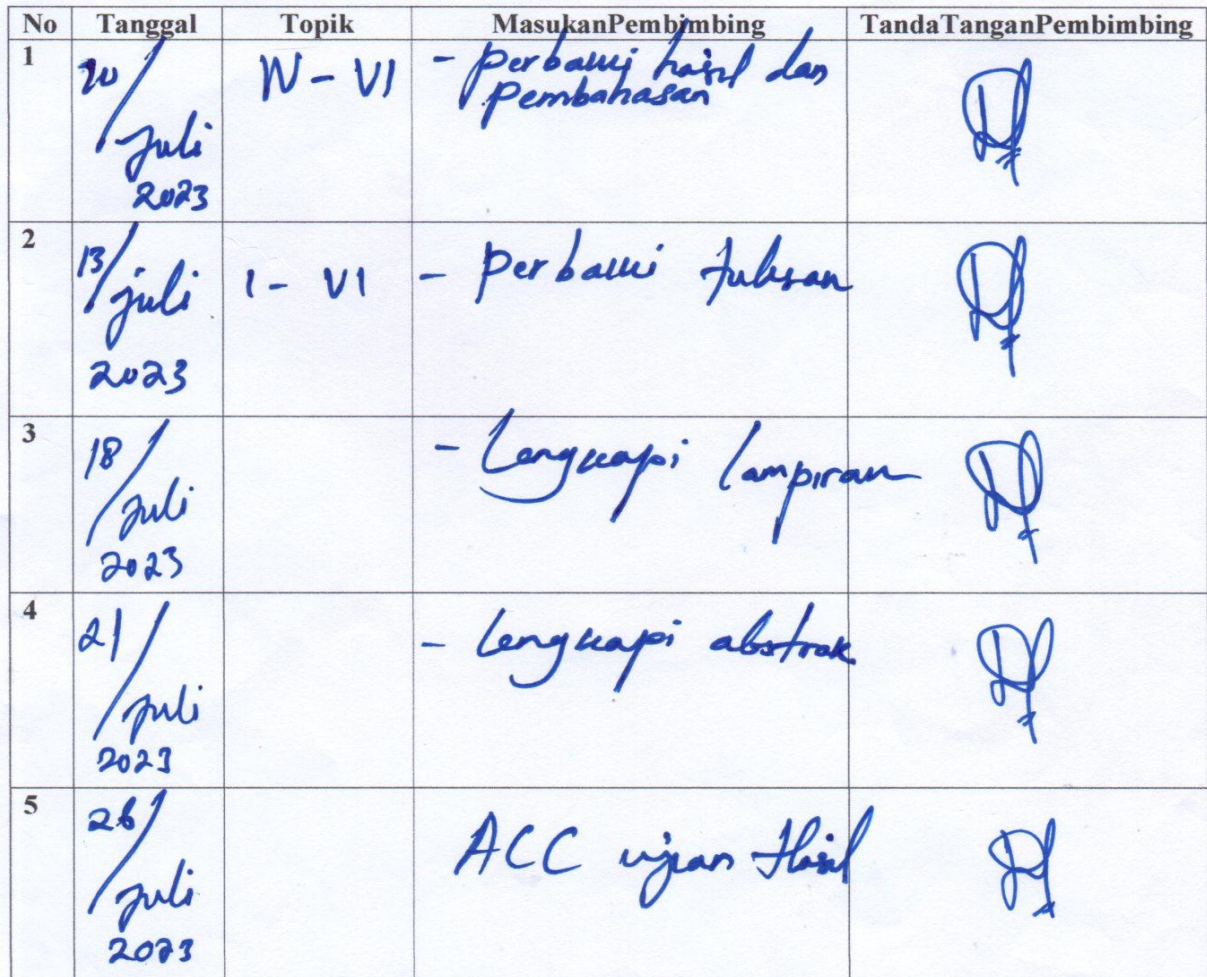 No Tanggal Topik MasukanPembimbing TandaTanganPembimbing
1
10/
Juli
2023
IV - VI
- Perbaiki hasil dan
Pembahasan
2
13/
juli
2023
I - VI
- Perbaiki tulisan
3
18/
juli
2023
- Lengkapi lampiran
4
21/
juli
2023
- Lengkapi abstrak
5
26/
juli
2023
ACC ujian Hasil